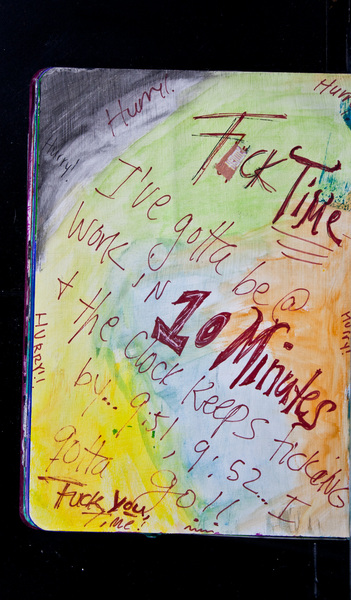 Hurry!
Hurry!
Hurry!
Fuck
Time
I've gotta be @
work in
10 Minutes
& the clock keeps ticking
by... 9:51, 9:52... I
gotta go!!
Hurry!!
Hurry!
Fuck you,
Time!